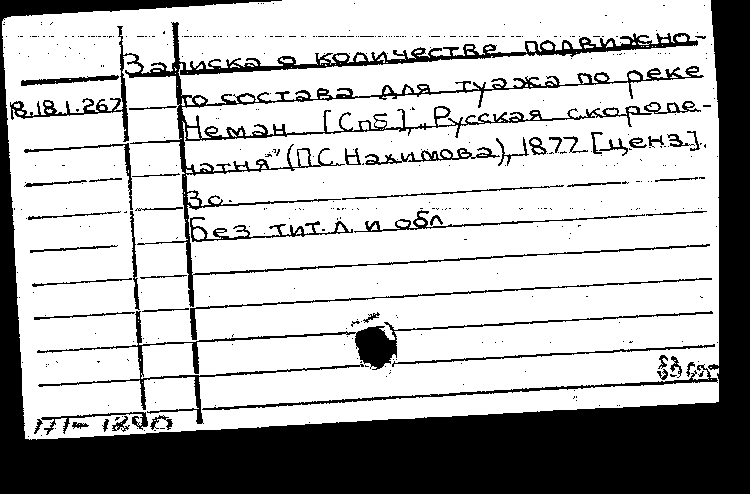 Записка о количестве подвижно-
18.18.1.267 го состава для туэжа по реке
Неман. [Спб], „Русская скоропе-
чатня" (П.С. Нахимова), 1877 [ценз].
3 с.
Без тит. л. и обл.